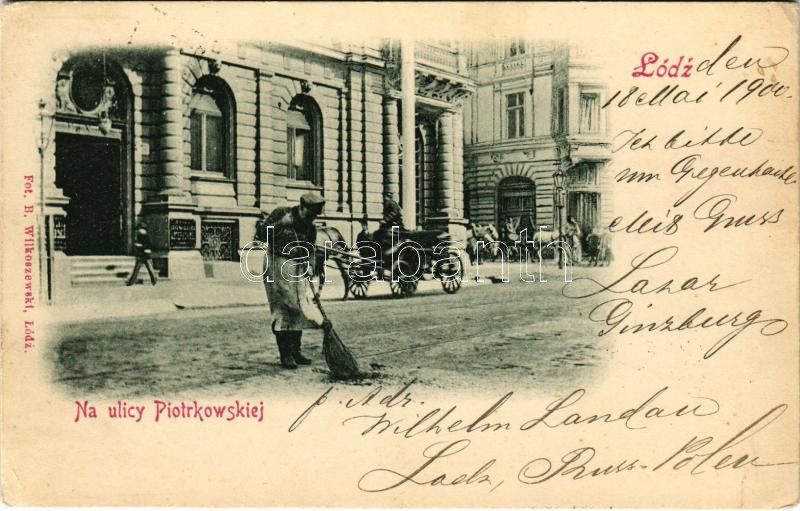 Łódź den
18 Mai 1900.
Ich bitte
um Gegenkarte
Mit Gruss
Lazar
Ginzburg
Fot. B. Wilkoszewski, Łódź.
darabanth
Na ulicy Piotrkowskiej
p. Adr.
Wilhelm Landau
Lodz, Russ-Polen